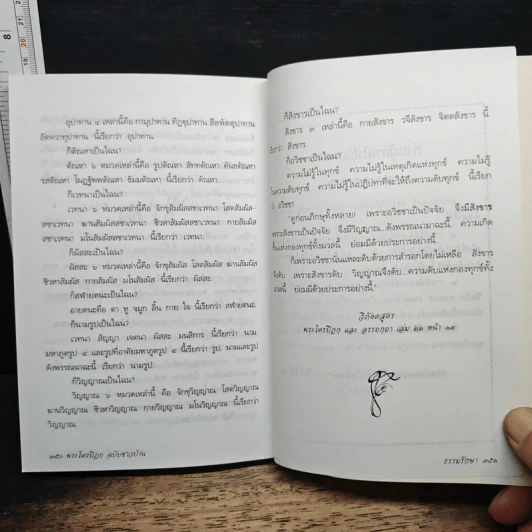 อุปาทาน ๔ เหล่านี้คือ กามุปาทาน ทิฏฐุปาทาน สีลัพพัตตุปาทาน
อัตตวาทุปาทาน นี้เรียกว่า อุปาทาน.
ก็ตัณหาเป็นไฉน?
ตัณหา ๖ หมวดเหล่านี้คือ รูปตัณหา สัททตัณหา คันธตัณหา
รสตัณหา โผฏฐัพพตัณหา ธัมมตัณหา นี้เรียกว่า ตัณหา.
ก็เวทนาเป็นไฉน?
เวทนา ๖ หมวดเหล่านี้คือ จักขุสัมผัสสชาเวทนา โสตสัมผัส-
สชาเวทนา ฆานสัมผัสสชาเวทนา ชิวหาสัมผัสสชาเวทนา กายสัมผัส
สชาเวทนา มโนสัมผัสสชาเวทนา นี้เรียกว่า เวทนา.
ก็ผัสสะเป็นไฉน?
ผัสสะ ๖ หมวดเหล่านี้คือ จักขุสัมผัส โสตสัมผัส ฆานสัมผัส
ชิวหาสัมผัส กายสัมผัส มโนสัมผัส นี้เรียกว่า ผัสสะ.
ก็สฬายตนะเป็นไฉน?
อายตนะคือ ตา หู จมูก ลิ้น กาย ใจ นี้เรียกว่า สฬายตนะ.
ก็นามรูปเป็นไฉน?
เวทนา สัญญา เจตนา ผัสสะ มนสิการ นี้เรียกว่า นาม.
มหาภูตรูป ๔ และรูปที่อาศัยมหาภูตรูป ๔ นี้เรียกว่า รูป. นามและรูป
ดังพรรณนาฉะนี้ เรียกว่า นามรูป.
ก็วิญญาณเป็นไฉน?
วิญญาณ ๖ หมวดเหล่านี้ คือ จักขุวิญญาณ โสตวิญญาณ
ฆานวิญญาณ ชิวหาวิญญาณ กายวิญญาณ มโนวิญญาณ นี้เรียกว่า
วิญญาณ.
๓๕๖ พระไตรปิฎก ฉบับชาวบ้าน
ก็สังขารเป็นไฉน?
สังขาร ๓ เหล่านี้คือ กายสังขาร วจีสังขาร จิตตสังขาร นี้
เรียกว่า สังขาร.
ก็อวิชชาเป็นไฉน?
ความไม่รู้ในทุกข์ ความไม่รู้ในเหตุเกิดแห่งทุกข์ ความไม่รู้
ในความดับทุกข์ ความไม่รู้ในปฏิปทาที่จะให้ถึงความดับทุกข์ นี้เรียก
ว่า อวิชชา
"ดูก่อนภิกษุทั้งหลาย! เพราะอวิชชาเป็นปัจจัย จึงมีสังขาร
เพราะสังขารเป็นปัจจัย จึงมีวิญญาณ...ดังพรรณนามาฉะนี้ ความเกิด
ขึ้นแห่งกองทุกข์ทั้งมวลนี้ ย่อมมีด้วยประการอย่างนี้.
ก็เพราะอวิชชานั่นแหละดับด้วยการสำรอกโดยไม่เหลือ สังขาร
จึงดับ เพราะสังขารดับ วิญญาณจึงดับ...ความดับแห่งกองทุกข์ทั้ง
มวลนี้ ย่อมมีด้วยประการอย่างนี้."
วิภังคสูตร
พระไตรปิฎก และ อรรถกถา เล่ม ๒๖ หน้า
ธรรมรักษา
8
20
21